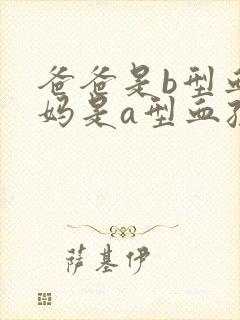 爸爸是b型
妈是a型血
萨基伊